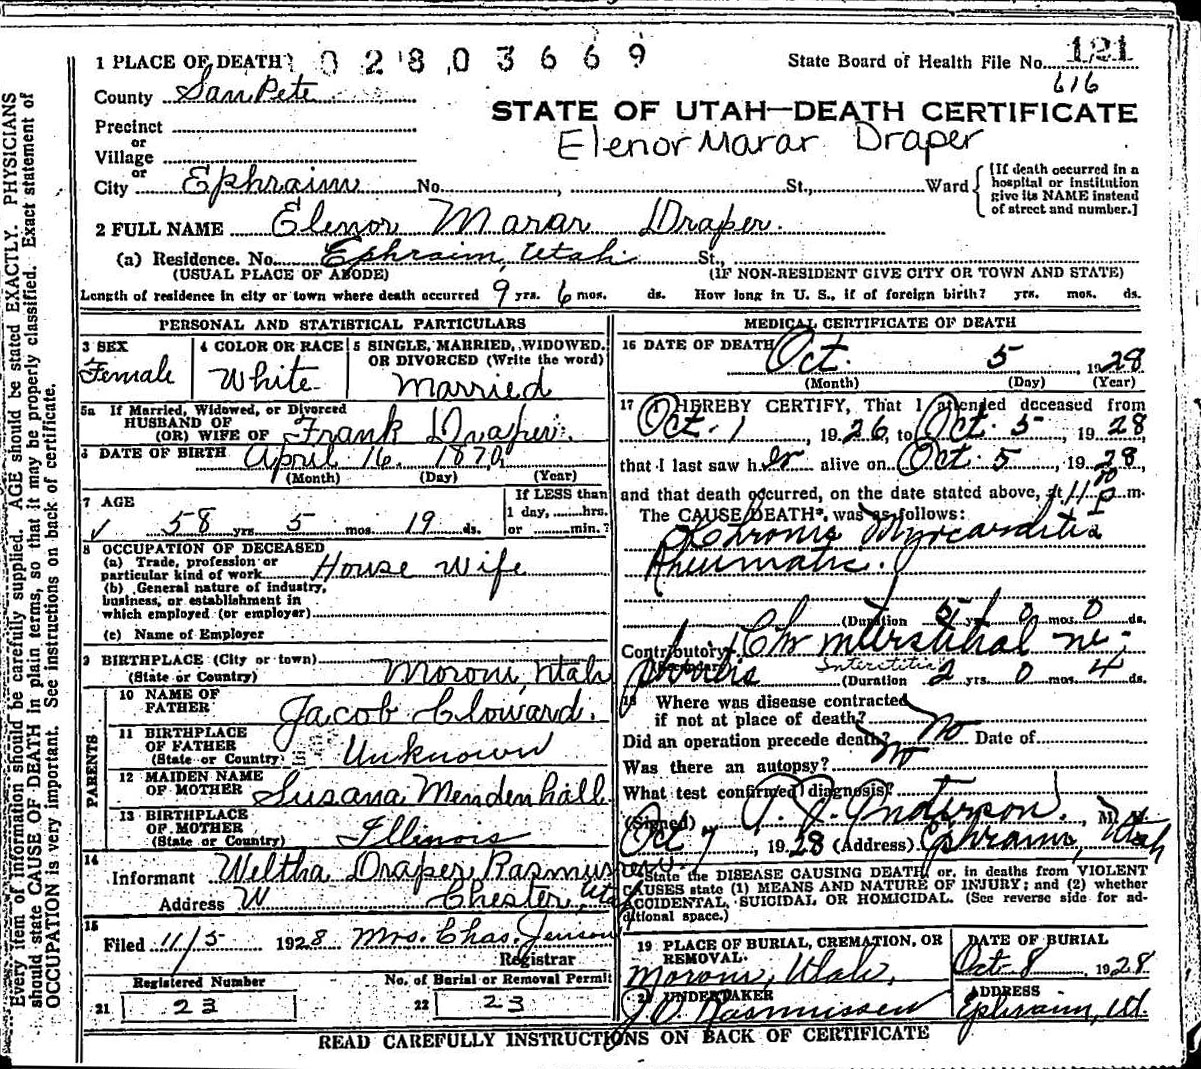 1 PLACE OF DEATH 02803669
State Board of Health File No. 121
616
County San Pete
STATE OF UTAH—DEATH CERTIFICATE
Precinct
Elenor Marar Draper
or
Village
or
City Ephraim No. , St., Ward
[If death occurred in a hospital or institution give its NAME instead of street and number.]
2 FULL NAME Elenor Marar Draper.
(a) Residence. No. Ephraim, Utah St.,
(USUAL PLACE OF ABODE) (IF NON-RESIDENT GIVE CITY OR TOWN AND STATE)
Length of residence in city or town where death occurred 9 yrs. 6 mos. ds. How long in U. S., if of foreign birth? yrs. mos. ds.
PERSONAL AND STATISTICAL PARTICULARS
3 SEX
Female
4 COLOR OR RACE
White
5 SINGLE, MARRIED, WIDOWED.
OR DIVORCED (Write the word)
Married
5a If Married, Widowed, or Divorced
HUSBAND OF
(OR) WIFE OF Frank Draper.
6 DATE OF BIRTH April 16. 1870
(Month) (Day) (Year)
7 AGE
58 yrs 5 mos. 19 ds.
If LESS than
1 day, hrs.
or min.?
8 OCCUPATION OF DECEASED
(a) Trade, profession or
particular kind of work House Wife
(b) General nature of industry,
business, or establishment in
which employed (or employer)
(c) Name of Employer
9 BIRTHPLACE (City or town)
(State or Country) Moroni, Utah
PARENTS
10 NAME OF
FATHER Jacob Cloward.
11 BIRTHPLACE
OF FATHER
(State or Country) Unknown
12 MAIDEN NAME
OF MOTHER Susana Mendenhall
13 BIRTHPLACE
OF MOTHER
(State or Country) Illinois
14
Informant Weltha Draper Rasmussen
Address W Chester, Utah
15
Filed 11/5 1928 Mrs. Chas. Jenson
Registrar
Registered Number
21 23
No. of Burial or Removal Permit
22 23
MEDICAL CERTIFICATE OF DEATH
16 DATE OF DEATH Oct. 5 1928
(Month) (Day) (Year)
17 I HEREBY CERTIFY, That I attended deceased from
Oct. 1, 1926, to Oct. 5, 1928,
that I last saw her alive on Oct 5, 1928
and that death occurred, on the date stated above, at 11 P m.
The CAUSE DEATH*, was as follows:
Chronic Myocarditis
Rheumatic.
(Duration 5 yrs 0 mos 0 ds.
Contributory Chr interstitial ne-
(Secondary)
phritis Interstitial
(Duration 2 yrs. 0 mos 4 ds.
18 Where was disease contracted
if not at place of death?
Did an operation precede death? No Date of
Was there an autopsy? No
What test confirmed diagnosis?
(Signed) Anderson, M. D.
Oct 7, 1928 (Address) Ephraim, Utah
*State the DISEASE CAUSING DEATH, or, in deaths from VIOLENT
CAUSES state (1) MEANS AND NATURE OF INJURY; and (2) whether
ACCIDENTAL, SUICIDAL OR HOMICIDAL. (See reverse side for ad-
ditional space.)
19 PLACE OF BURIAL, CREMATION, OR
REMOVAL
Moroni, Utah,
DATE OF BURIAL
Oct-8, 1928
20 UNDERTAKER
Rasmussen
ADDRESS
Ephraim, Ut.
READ CAREFULLY INSTRUCTIONS ON BACK OF CERTIFICATE
Every item of information should be carefully supplied. AGE should be stated EXACTLY. PHYSICIANS
should state CAUSE OF DEATH in plain terms, so that it may be properly classified. Exact statement of
OCCUPATION is very important. See instructions on back of certificate.